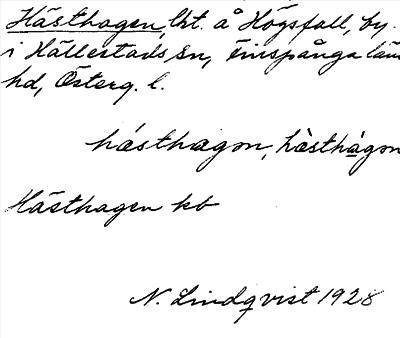 Hästhagen, lht. å Högsfall, by.
i Hällestads sn, Finspånga län
hd, Österg. l.
hásthagon, hàsthàgon
Hästhagen kb
N. Lindqvist 1928